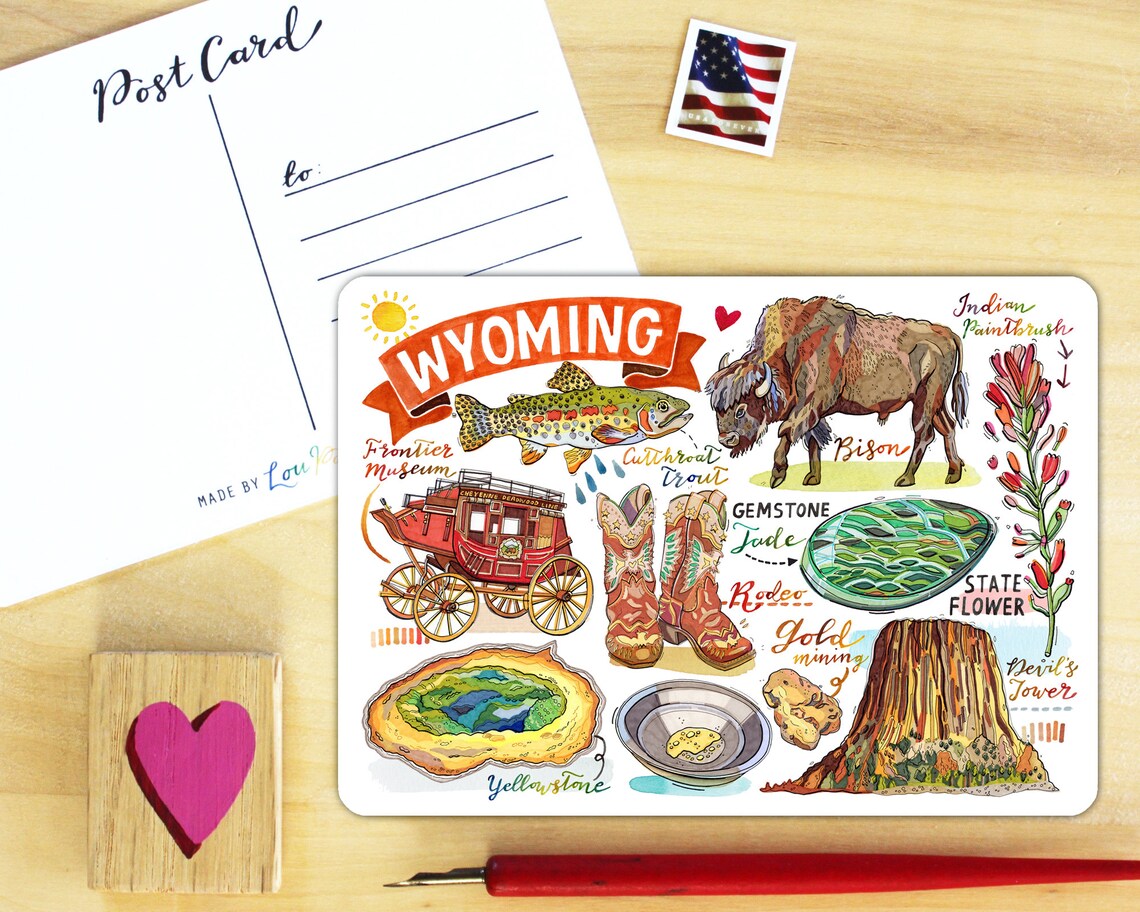 Post Card
to:
MADE BY Lou
USA FOREVER
WYOMING
Indian
Paintbrush
Frontier
Museum
Cutthroat
Trout
Bison
CHEYENNE DEADWOOD LINE
GEMSTONE
Jade
STATE
FLOWER
Rodeo
Gold
mining
Devil's
Tower
Yellowstone